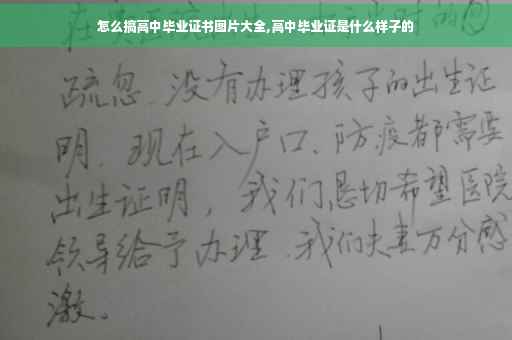 怎么搞高中毕业证书图片大全,高中毕业证是什么样子的
疏忽、没有办理孩子的出生证
明、现在入户口、防疫都需要
出生证明，我们恳切希望医院
领导给予办理、我们夫妻万分感
激。